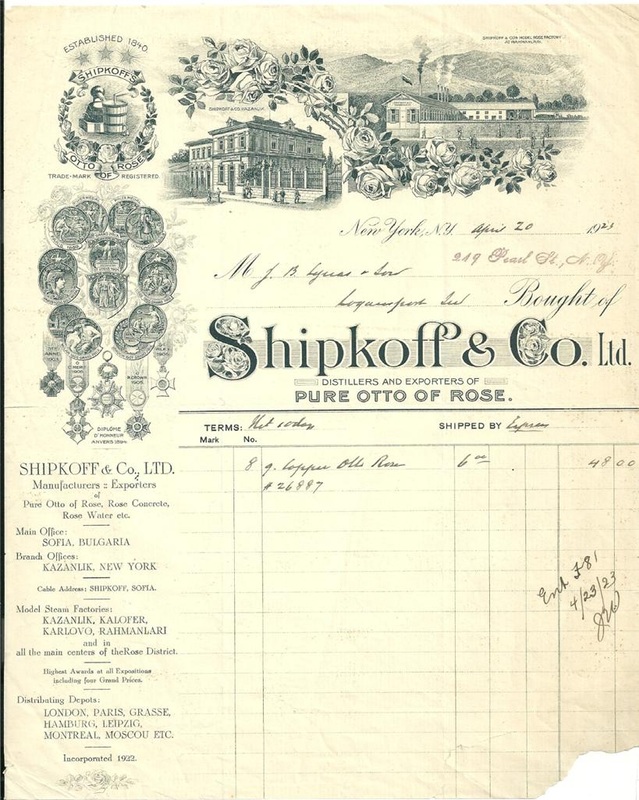 ESTABLISHED 1840.
SHIPKOFF'S
OTTO OF ROSE
TRADE-MARK REGISTERED
SHIPKOFF & CO. KAZANLIK
SHIPKOFF & CO'S MODEL ROSE FACTORY
AT RAHMANLARI
New York, N.Y. April 20 1923
219 Pearl St., N.Y.
M J. B. & Son
Logansport Ind
Bought of
Shipkoff & Co. Ltd.
DISTILLERS AND EXPORTERS OF
PURE OTTO OF ROSE.
DIPLÔME
D'HONNEUR
ANVERS 1894
TERMS: Net 10 days SHIPPED BY Express
Mark No.
8 oz. Copper Otto Rose 6 00 48 00
#26887
Ent F81
4/23/23
SHIPKOFF & Co., LTD.
Manufacturers :: Exporters
of
Pure Otto of Rose, Rose Concrete,
Rose Water etc.
Main Office:
SOFIA, BULGARIA
Branch Offices:
KAZANLIK, NEW YORK
Cable Address: SHIPKOFF, SOFIA.
Model Steam Factories:
KAZANLIK, KALOFER,
KARLOVO, RAHMANLARI
and in
all the main centers of theRose District.
Highest Awards at all Expositions
including four Grand Prizes.
Distributing Depots:
LONDON, PARIS, GRASSE,
HAMBURG, LEIPZIG,
MONTREAL, MOSCOU ETC.
Incorporated 1922.